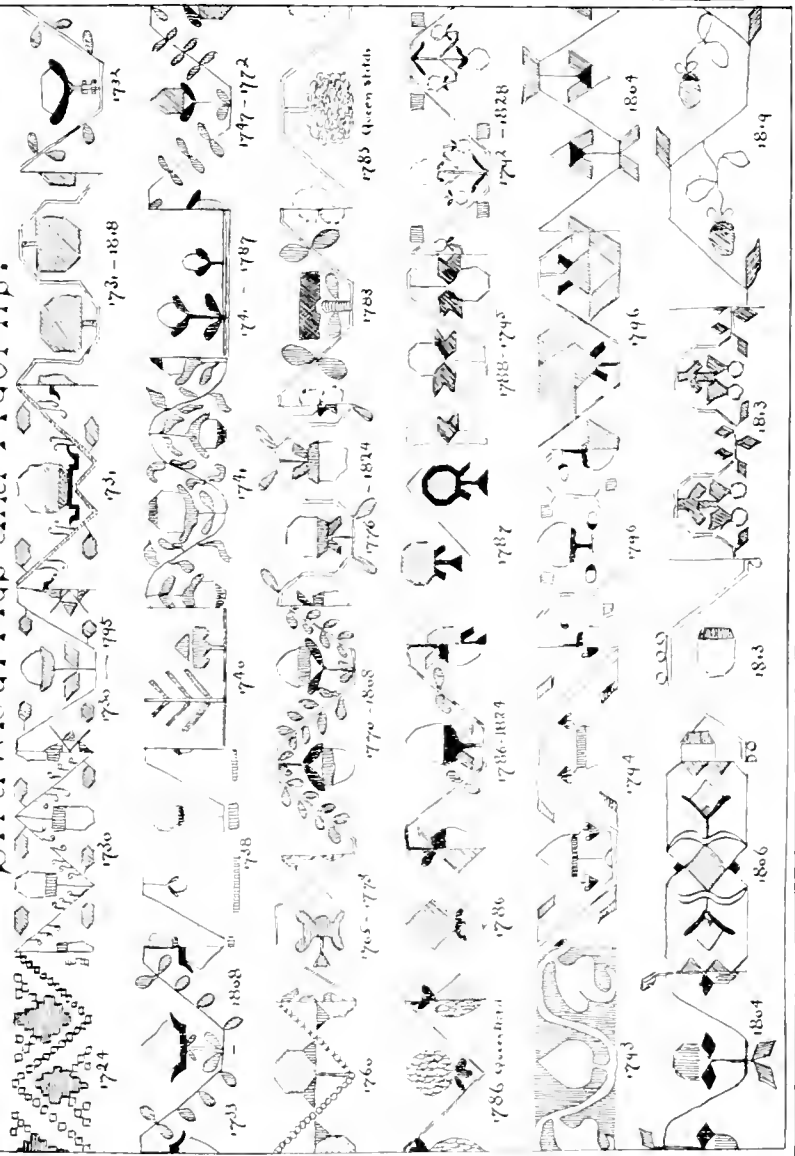 1724 1730 1730 — 1795 1731 1731 - 1818 1732
1733 - 1808 1738 1740 1741 1741 - 1787 1747 - 1772
1760 1765 - 1773 1770 - 1808 1776 - 1824 1783 1785 Queen stitch
1786 Queen stitch 1786 1786 - 1824 1787 1788 - 1795 1792 - 1828
1793 1794 1796 1796 1804
1804 1806 Do 1813 1813 1819